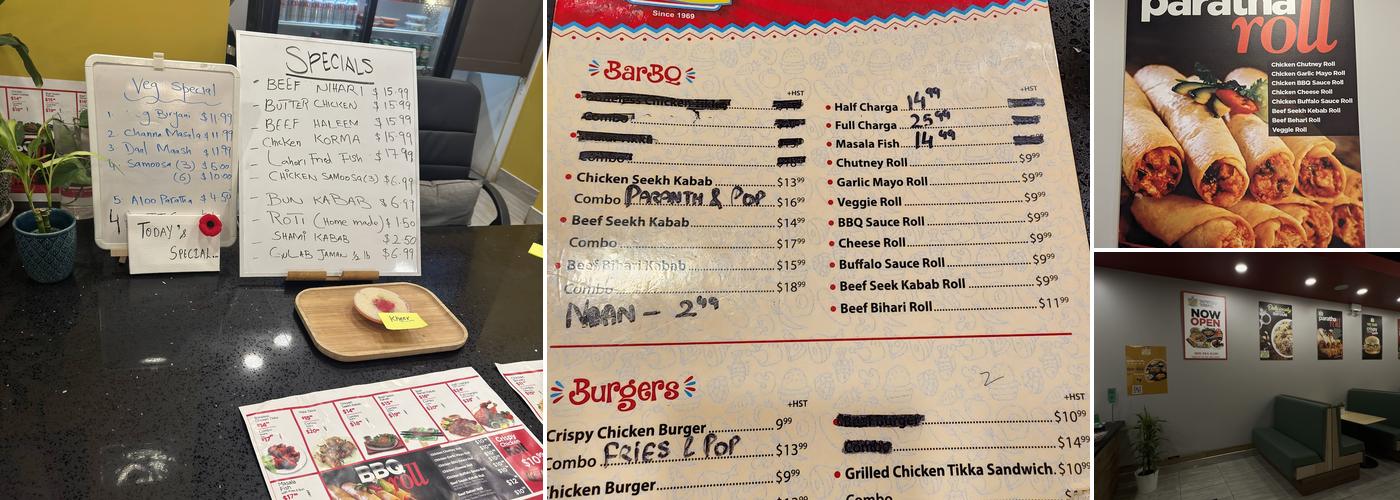 Veg Special
1. g Biryani $11.99
2 Channa Masala $11.99
3 Daal Maash $11.99
4. Samoosa (3) $5.00
(6) $10.00
5. Aloo Paratha $4.50
TODAY'S
SPECIAL
SPECIALS
- BEEF NIHARI $15.99
- BUTTER CHICKEN $15.99
- BEEF HALEEM $15.99
- Chicken KORMA $15.99
- Lahori Fried Fish $17.99
- CHICKEN SAMOOSA(3) $6.99
- BUN KABAB $6.99
- ROTI (Home made) $1.50
- SHAMI KABAB $2.50
- GULAB JAMAN ½ lb $6.99
Kheer
BBQ
roll
Crispy
Chicken
Masala
Fish
Since 1969
BarBQ
+HST
Combo
Combo
Chicken Seekh Kabab $13.99
Combo PARANTH & POP $16.99
Beef Seekh Kabab $14.99
Combo $17.99
Beef Bihari Kabab $15.99
Combo $18.99
NAAN - 2.49
+HST
Half Charga 14.99
Full Charga 25.99
Masala Fish 14.99
Chutney Roll $9.99
Garlic Mayo Roll $9.99
Veggie Roll $9.99
BBQ Sauce Roll $9.99
Cheese Roll $9.99
Buffalo Sauce Roll $9.99
Beef Seek Kabab Roll $9.99
Beef Bihari Roll $11.99
Burgers
+HST
Crispy Chicken Burger 9.99
Combo FRIES & POP $13.99
Chicken Burger $9.99
2
+HST
$10.99
Combo $14.99
Grilled Chicken Tikka Sandwich $10.99
Combo
paratha
roll
Chicken Chutney Roll
Chicken Garlic Mayo Roll
Chicken BBQ Sauce Roll
Chicken Cheese Roll
Chicken Buffalo Sauce Roll
Beef Seekh Kabab Roll
Beef Behari Roll
Veggie Roll
NOW
OPEN
paratha
roll